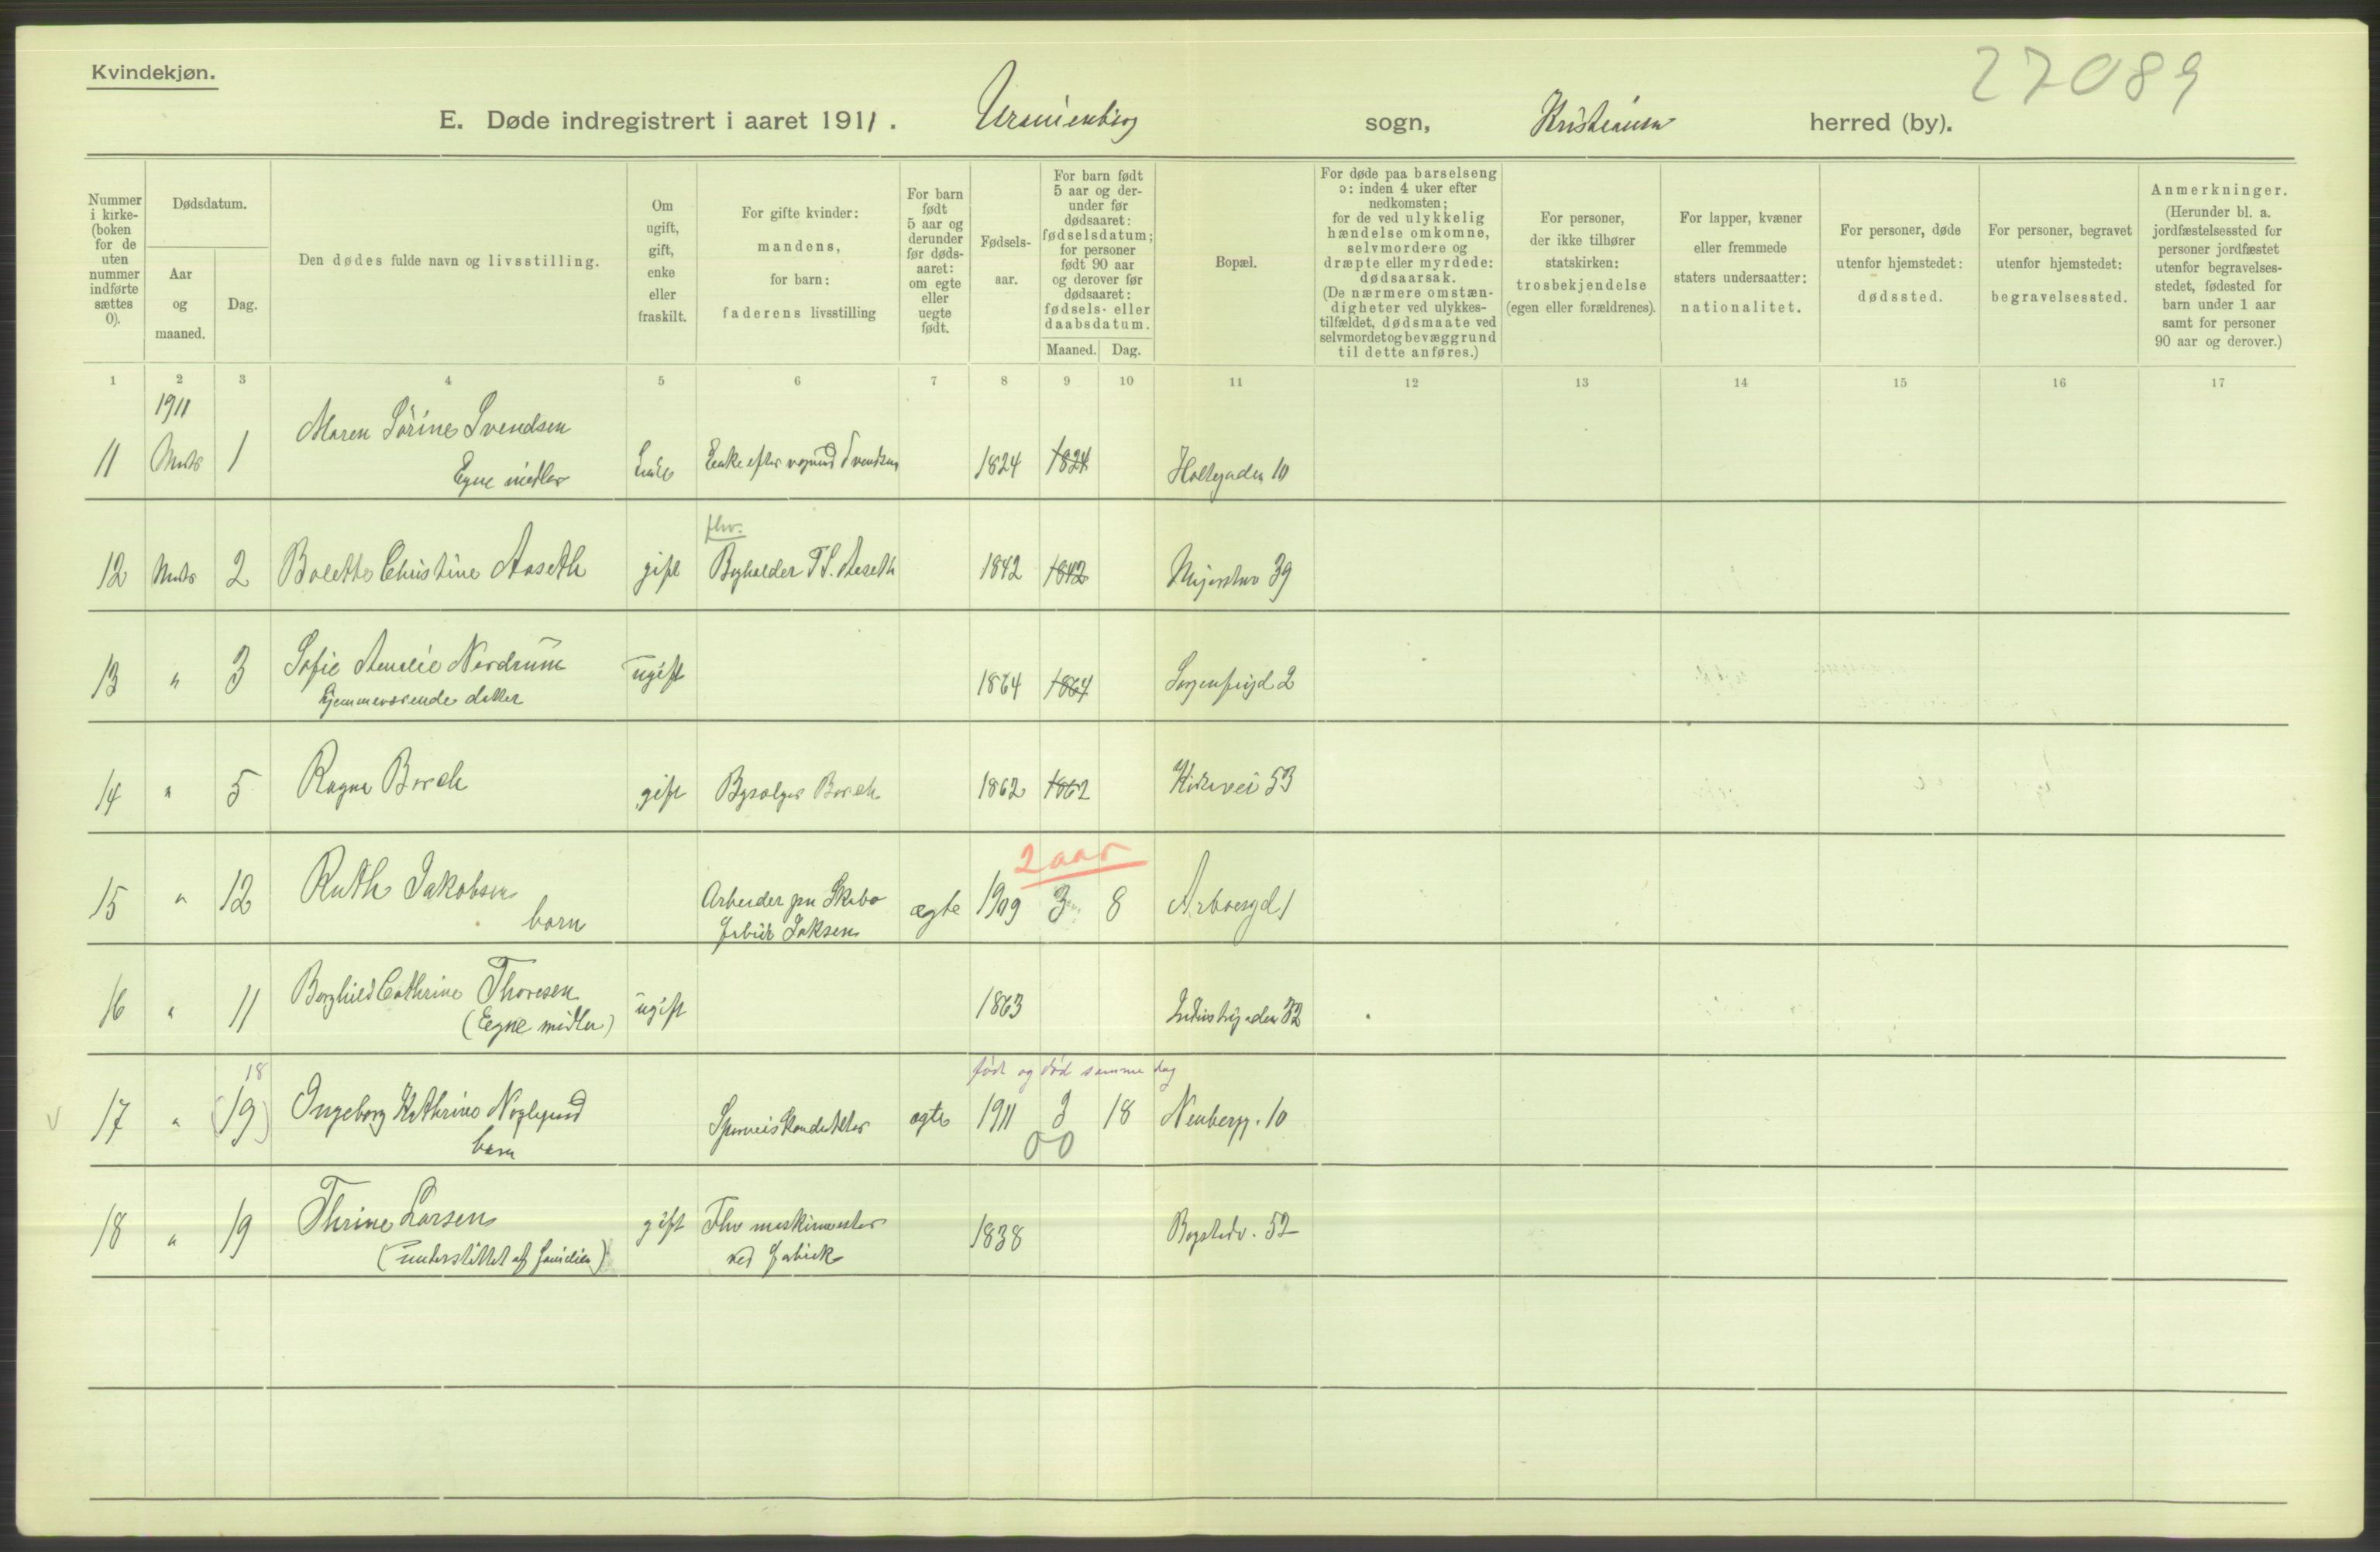 Kvindekjøn.
27089
E. Døde indregistrert i aaret 1911. Uranienborg sogn, Kristiania herred (by).
Nummer i kirke-(boken for de uten nummer indførte sættes 0).
Dødsdatum.
Aar og maaned.
Dag.
Den dødes fulde navn og livsstilling.
Om ugift, gift, enke eller fraskilt.
For gifte kvinder: mandens, for barn: faderens livsstilling
For barn født 5 aar og derunder før døds-aaret: om egte eller uegte født.
Fødsels-aar.
For barn født 5 aar og der-under før dødsaaret: fødselsdatum; for personer født 90 aar og derover før dødsaaret: fødsels- eller daabsdatum.
Maaned. Dag.
Bopæl.
For døde paa barselseng ɔ: inden 4 uker efter nedkomsten; for de ved ulykkelig hændelse omkomne, selvmordere og dræpte eller myrdede: dødsaarsak. (De nærmere omstæn-digheter ved ulykkes-tilfældet, dødsmaate ved selvmordet og bevæggrund til dette anføres.)
For personer, der ikke tilhører statskirken: trosbekjendelse (egen eller forældrenes).
For lapper, kvæner eller fremmede staters undersaatter: nationalitet.
For personer, døde utenfor hjemstedet: dødssted.
For personer, begravet utenfor hjemstedet: begravelsessted.
Anmerkninger. (Herunder bl. a. jordfæstelsessted for personer jordfæstet utenfor begravelses-stedet, fødested for barn under 1 aar samt for personer 90 aar og derover.)
1 2 3 4 5 6 7 8 9 10 11 12 13 14 15 16 17
1911
Maren Sørine Svendsen
11 Marts 1 Egne midler Enke Enke efter Svendsen 1824 1824 Holtegaden 10
fhv.
12 Marts 2 Bolette Christine Aaseth gift Byholder T S. Aaseth 1842 1842 Majorstuv 39
13 " 3 Sofie Amalie Nordrum ugift 1864 1864 Sorgenfrigd 2
Hjemmeværende datter
14 " 5 Ragna Borch gift Borch 1862 1862 Kirkevei 53
2 aar
15 " 12 Ruth Jakobsen Arbeider paa Skabo ægte 1909 3 8 Arboesgd 1
barn fabrik
16 " 11 Borghild Cathrine Thoresen ugift 1863 Industrigaden 32
(Egne midler)
18 født og død samme dag
17 " (19) Ingeborg Kathrine Noglegaard Sporveiskonduktør ægte 1911 3 18 Neuberg. 10
barn 00
18 " 19 Thrine Larsen gift Fhv maskinmester 1838 Bogstadv. 52
(understøttet af familien) ved fabrik